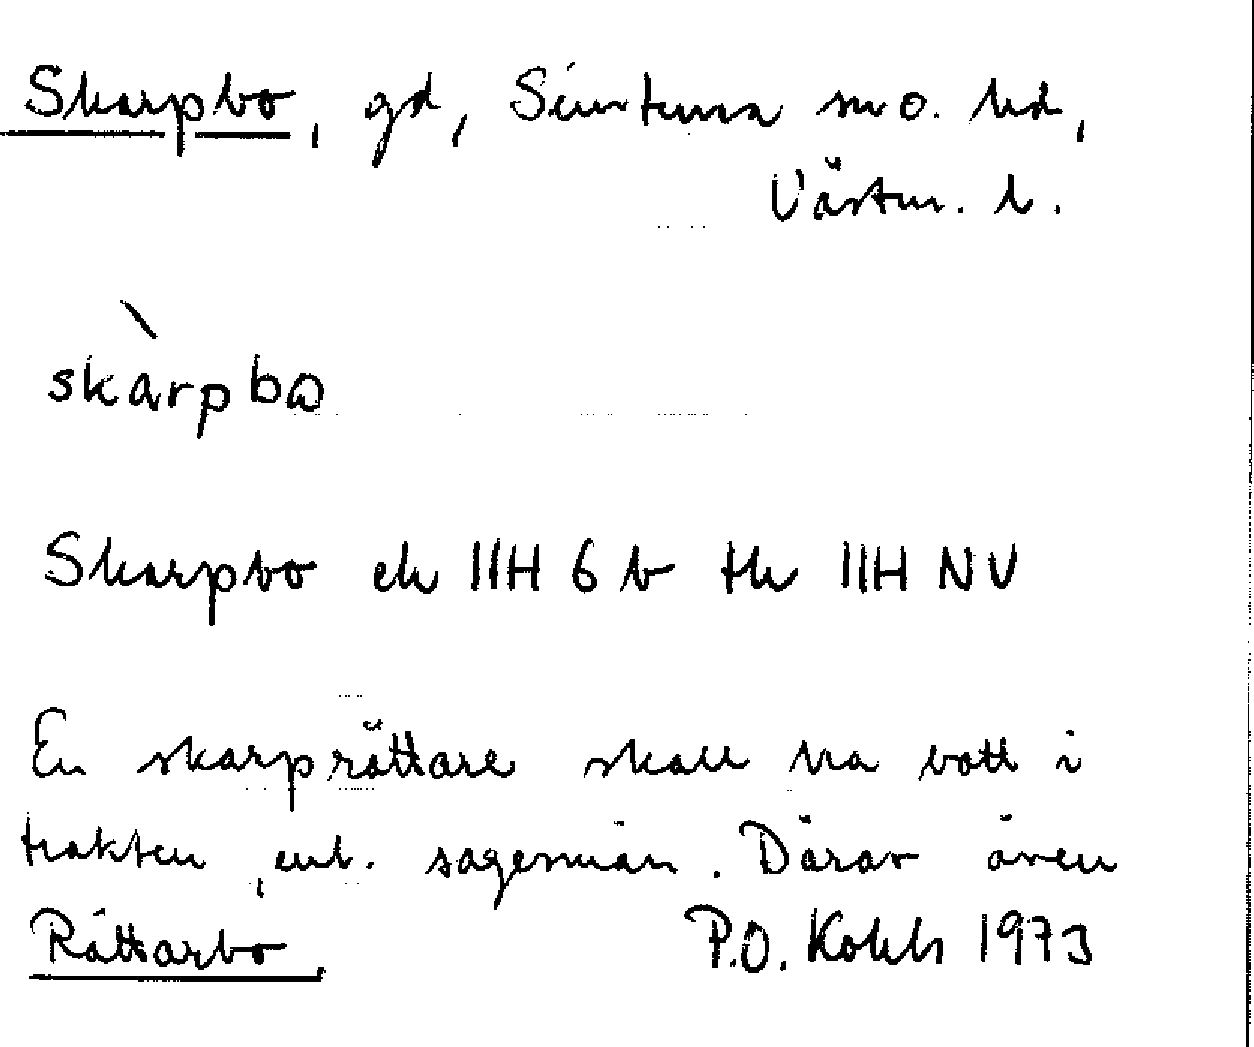 Skarpbo, gd, Simtuna sn o. hd,
Västm. l.
skàrpbω
Skarpbo ek 11H 6 b tk 11H NV
En skarprättare skall ha bott i
trakten, enl. sagesmän. Därav även
Rättarbo P.O.
1973